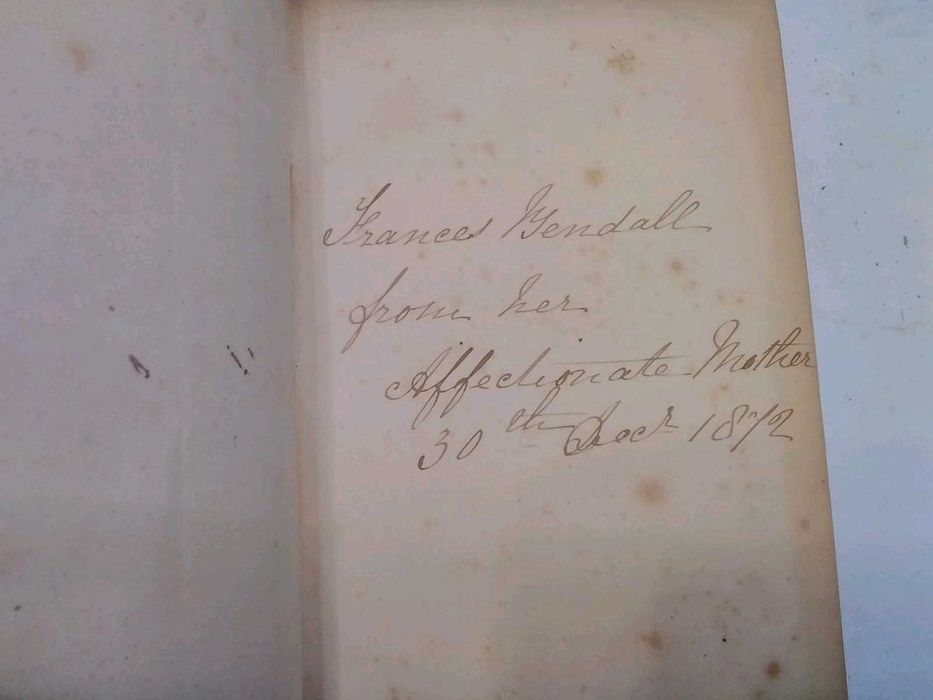 Frances Yendall
from her
Affectionate Mother
30th Decr 1872